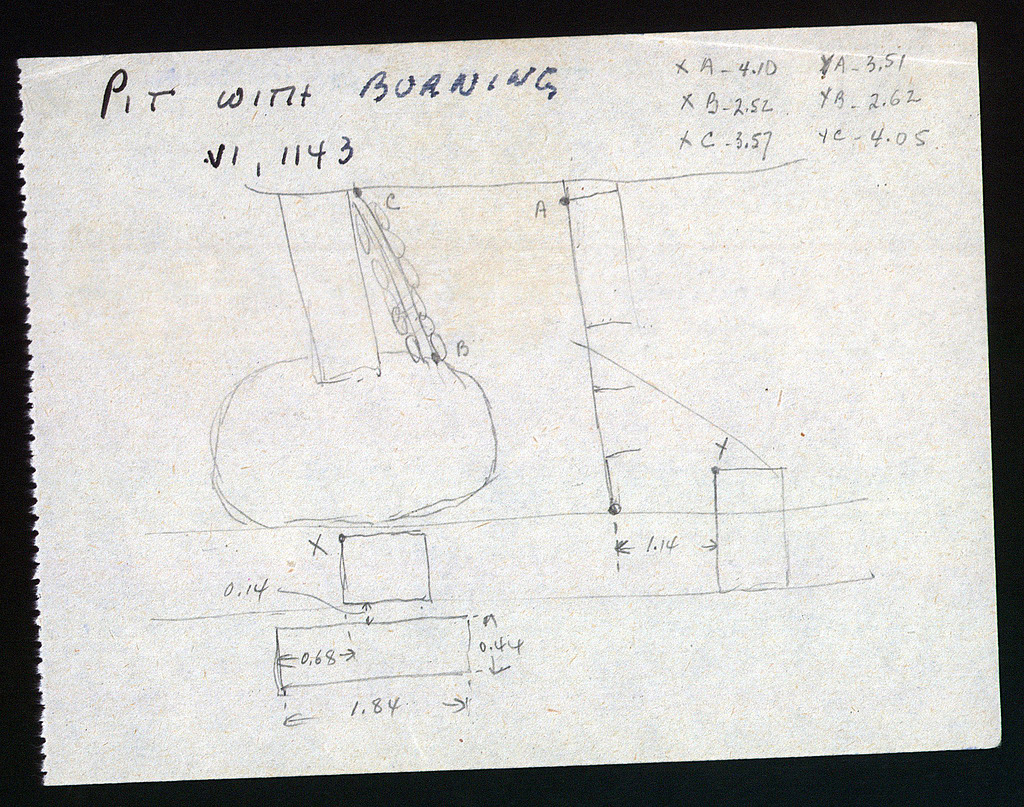 PIT WITH BURNING
VI, 1143
X A - 4.10 YA - 3.51
X B - 2.52 YB - 2.62
X C - 3.57 YC - 4.05
C
A
B
X
X
1.14
0.14
0.68
0.44
1.84